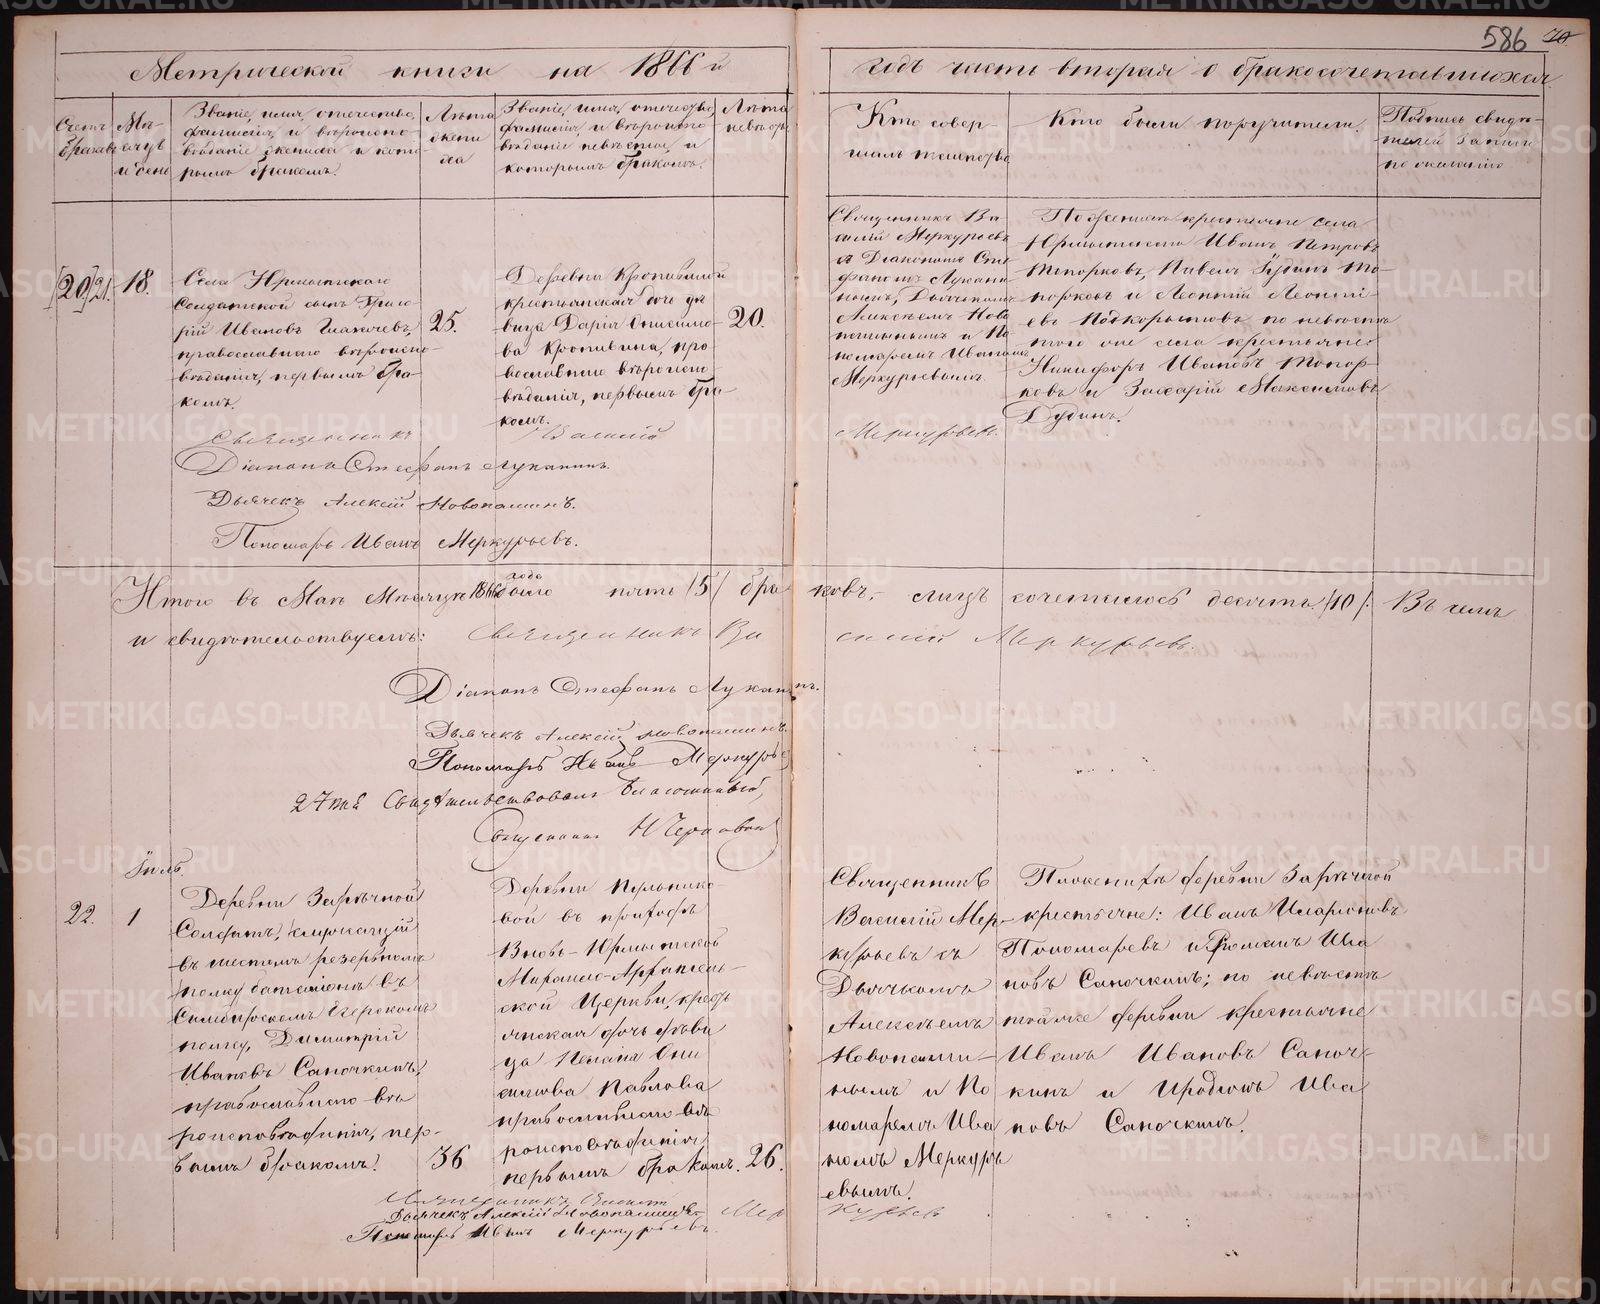 586 70.
Метрической книги на 1866 й
годъ часть вторая о бракосочетавшихся
Счетъ браковъ
Мѣсяцъ и день
Званіе, имя, отечество,
фамилія, и вѣроиспо-
вѣданіе жениха и кото-
рымъ бракомъ.
Лѣта
жени
ха
Званіе, имя, отечество,
фамилія, и вѣроиспо
вѣданіе невѣсты, и
которымъ бракомъ.
Лѣта
невѣсты
Кто совер-
шалъ таинство
Кто были поручители.
Подпись свидѣ-
телей записи
по желанію
[20] 21. 18.
Села Юрмытскаго
Солдатской сынъ Григо
рій Ивановъ
православнаго вѣроиспо-
вѣданія, первымъ бра-
комъ.
25.
Деревни Кропивиной
крестьянская дочь дѣ
вица Дарія Онисимо-
ва Кропивина, пра
вославнаго вѣроиспо
вѣданія, первымъ бра-
комъ.
20.
Священникъ Ва
силій Меркурьевъ
съ Діакономъ Сте
фаномъ Лукани
нымъ, Дьячкомъ
Алексѣемъ Ново
пашинымъ и По
номаремъ Иваномъ
Меркурьевымъ
По женихѣ крестьяне села
Юрмытскаго Иванъ Петровъ
Топорковъ, Павелъ Гудинъ То-
порковъ и Леонтій Леонтi-
евъ Подкорытовъ, по невѣстѣ
того же села крестьяне
Никифоръ Ивановъ Топор-
ковъ и Захарій Максимовъ
Дудинъ.
Священникъ Василій
Меркурьевъ.
Діаконъ Стефанъ Луканинъ.
Дьячекъ Алексій Новопашинъ.
Пономарь Иванъ Меркурьевъ.
Итого въ Маѣ Мѣсяцѣ 1866 года было пять /5/ бра
ковъ, лицъ сочеталось десять /10/: Въ чемъ
и свидѣтельствуемъ: Священникъ Ва
силій Меркурьевъ.
Діаконъ Стефанъ Луканинъ.
Дьячекъ Алексій Новопашинъ.
Пономарь Иванъ Меркурьев
27 мая Свидѣтельствовалъ Благочинный,
Священникъ
Іюль.
22. 1
Деревни Зарѣчной
Солдатъ, служащій
въ шестомъ резервномъ
полку баталіонѣ въ
Симбирскомъ
полку, Димитрій
Ивановъ Саночкинъ,
православнаго вѣ
роисповѣданія, пер-
вымъ бракомъ.
36
Деревни Мельнико-
вой въ приходѣ
Вновь-Юрмытской
Михаило-Архангель-
ской Церкви, кресть
янская дочь дѣви
ца Пелагія Они
симова Павлова
православнаго вѣ
роисповѣданія
первымъ бракомъ.
26.
Священникъ
Василій Мер-
курьевъ съ
Дьячкомъ
Алексѣемъ
Новопаши-
нымъ и По
номаремъ Ива
номъ Меркурь
евымъ.
По женихѣ деревни Зарѣчной
крестьяне: Иванъ Иларіоновъ
Пономаревъ и Романъ Ива
новъ Саночкинъ; по невѣстѣ
той же деревни крестьяне
Иванъ Ивановъ Саноч-
кинъ и Иродіонъ Ива
новъ Саночкинъ.
Священникъ Василій Мер
курьевъ
Дьячекъ Алексій Новопашинъ
Пономарь Иванъ Меркурьевъ.
METRIKI.GASO-URAL.RU